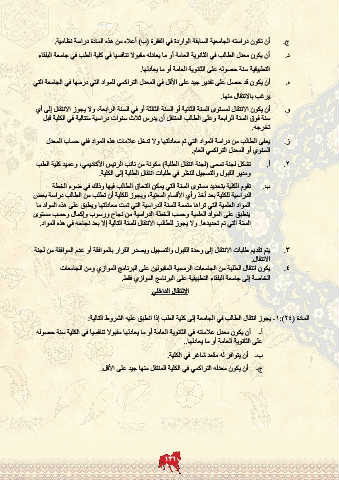 ج. أن تكون دراسته الجامعية السابقة الواردة في الفقرة (ب) أعلاه من هذه المادة دراسة نظامية.
د. أن يكون معدل الطالب في الثانوية العامة أو ما يعادله مقبولا تنافسيا في كلية الطب في جامعة البلقاء
التطبيقية سنة حصوله على الثانوية العامة أو ما يعادلها.
ه. أن يكون قد حصل على تقدير جيد على الأقل في المعدل التراكمي للمواد التي درسها في الجامعة التي
يرغب بالانتقال منها.
و. أن يكون الانتقال لمستوى السنة الثانية أو السنة الثالثة أو في السنة الرابعة، ولا يجوز الانتقال إلى أي
سنة فوق السنة الرابعة وعلى الطالب المنتقل أن يدرس ثلاث سنوات دراسية متتالية في الكلية قبل
تخرجه.
ز. يعفى الطالب من دراسة المواد التي تم معادلتها ولا تدخل علامات هذه المواد في حساب المعدل
السنوي أو المعدل التراكمي العام.
٢. أ. تشكل لجنة تسمى (لجنة انتقال الطلبة) مكونة من نائب الرئيس الأكاديمي، وعميد كلية الطب
ومدير القبول والتسجيل للنظر في طلبات انتقال الطلبة إلى الكلية.
ب. تقوم الكلية بتحديد مستوى السنة التي يمكن التحاق الطالب فيها وذلك في ضوء الخطة
الدراسية للكلية بعد أخذ رأي الأقسام المعنية، ويجوز للكلية أن تطلب من الطالب دراسة بعض
المواد العلمية التي تراها متممة للسنة الدراسية التي تمت معادلتها ويطبق على هذه المواد ما
ينطبق على المواد العلمية وحسب الخطة الدراسية من نجاح ورسوب وإكمال وحسب مستوى
السنة التي تم تحديدها. ولا يجوز للطالب الانتقال للسنة التالية إلا بعد نجاحه في هذه المواد.
٣. يتم تقديم طلبات الانتقال إلى وحدة القبول والتسجيل ويصدر القرار بالموافقة أو عدم الموافقة من لجنة
الانتقال.
٤. يكون انتقال الطلبة من الجامعات الرسمية المقبولين على البرنامج الموازي ومن الجامعات
الخاصة إلى جامعة البلقاء التطبيقية على البرنامج الموازي فقط.
الانتقال الداخلي
المادة (٢٤):١- يجوز انتقال الطالب في الجامعة إلى كلية الطب إذا انطبق عليه الشروط التالية:
أ- أن يكون معدل علاماته في الثانوية العامة أو ما يعادلها مقبولا تنافسيا في الكلية سنة حصوله
على الثانوية العامة أو ما يعادلها..
ب- أن يتوافر له مقعد شاغر في الكلية.
ج- أن يكون معدله التراكمي في الكلية المنتقل منها جيد على الأقل.
١٢١